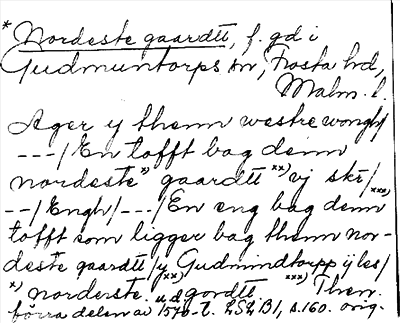 * Nordeste gaardtt, f. gd i
Gudmuntorps sn, Frosta hrd,
Malm. l.
Ager y thenn westre wongh/
---/ En tofft bag denn
nordeste *) gaardtt **) vj skr/ ***)
--/ Engh/---/ En eng bag denn
tofft som ligger bag thenn nor-
deste gaardtt/ y Gudmindtorpp ij les/
*) norderste. **) gordtt ***) Then.
förra delen av 1570-t. LSQ B1, s.160. orig.